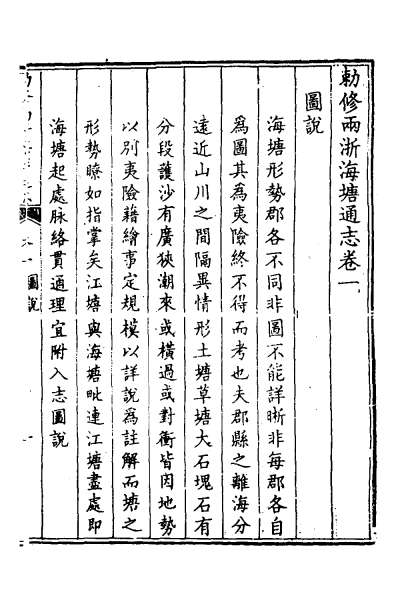 勅修兩浙海塘通志卷一
圖説
海塘形勢郡各不同非圖不能詳晰非每郡各自
為圖其為夷險終不得而考也夫郡縣之離海分
遠近山川之間隔異情形土塘草塘大石塊石有
分段護沙有廣狹潮來或橫過或對衝皆因地勢
以别夷險藉繪事定規模以詳說為註解而塘之
形勢瞭如指掌矣江塘與海塘毗連江塘盡處即
海塘起處脉絡貫通理宜附入志圖說
圖說